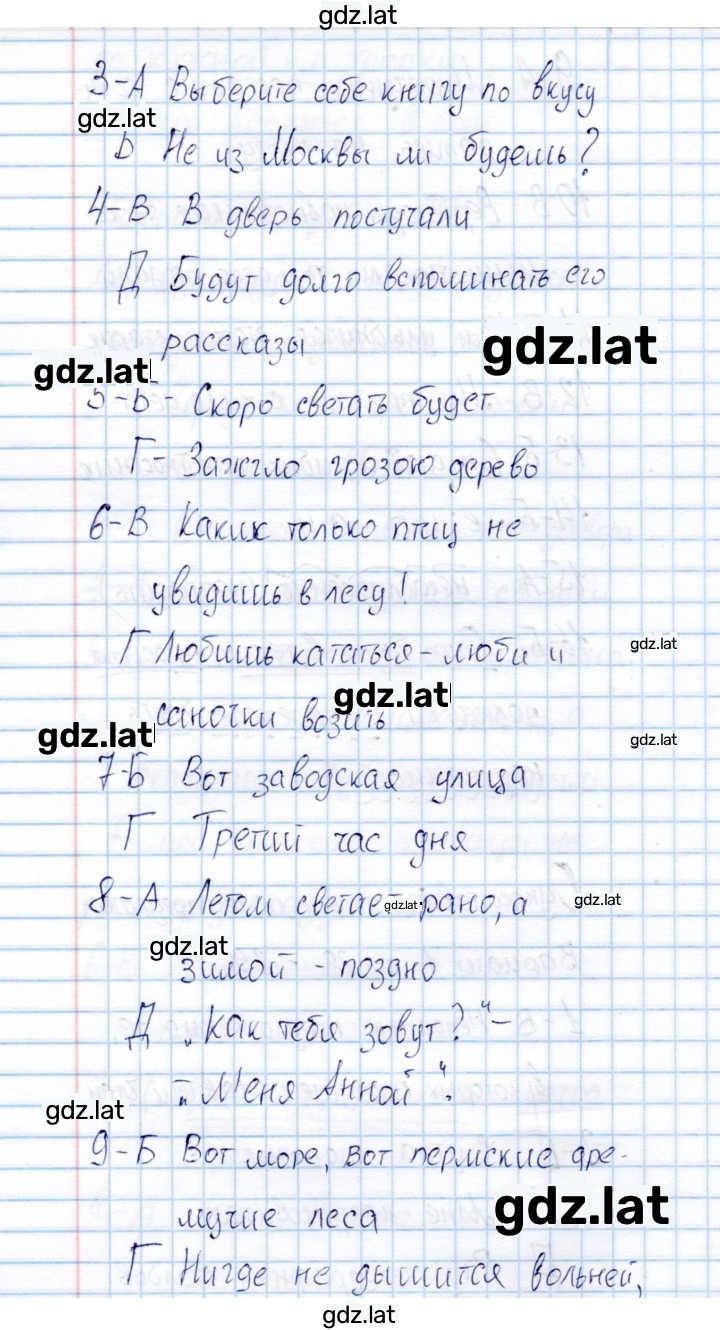 gdz.lat
3-А Выберите себе книгу по вкусу
gdz.lat
Д Не из Москвы ли будешь?
4-В В дверь постучали
Д Будут долго вспоминать его
рассказы
gdz.lat
gdz.lat
5-Б- Скоро светать будет
Г- Зажгло грозою дерево
6-В Каких только птиц не
увидишь в лесу!
Г Любишь кататься - люби и
gdz.lat
саночки возить
gdz.lat
gdz.lat
gdz.lat
7-Б Вот заводская улица
Г Третий час дня
8-А Летом светает рано, а
gdz.lat
gdz.lat
зимой - поздно
gdz.lat
Д „Как тебя зовут?“ -
- „Меня Анной“.
gdz.lat
9-Б Вот море, вот пермские дре-
мучие леса
gdz.lat
Г Нигде не дышится вольней,
gdz.lat